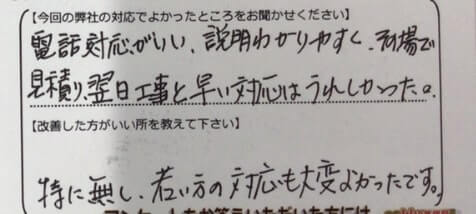 【今回の弊社の対応でよかったところをお聞かせください】
電話対応がいい、説明わかりやすく、現場で
見積り、翌日工事と早い対応はうれしかった。
【改善した方がいい所を教えて下さい】
特に無し、若い方の対応も大変よかったです。
アンケートをお答えいただいた方には